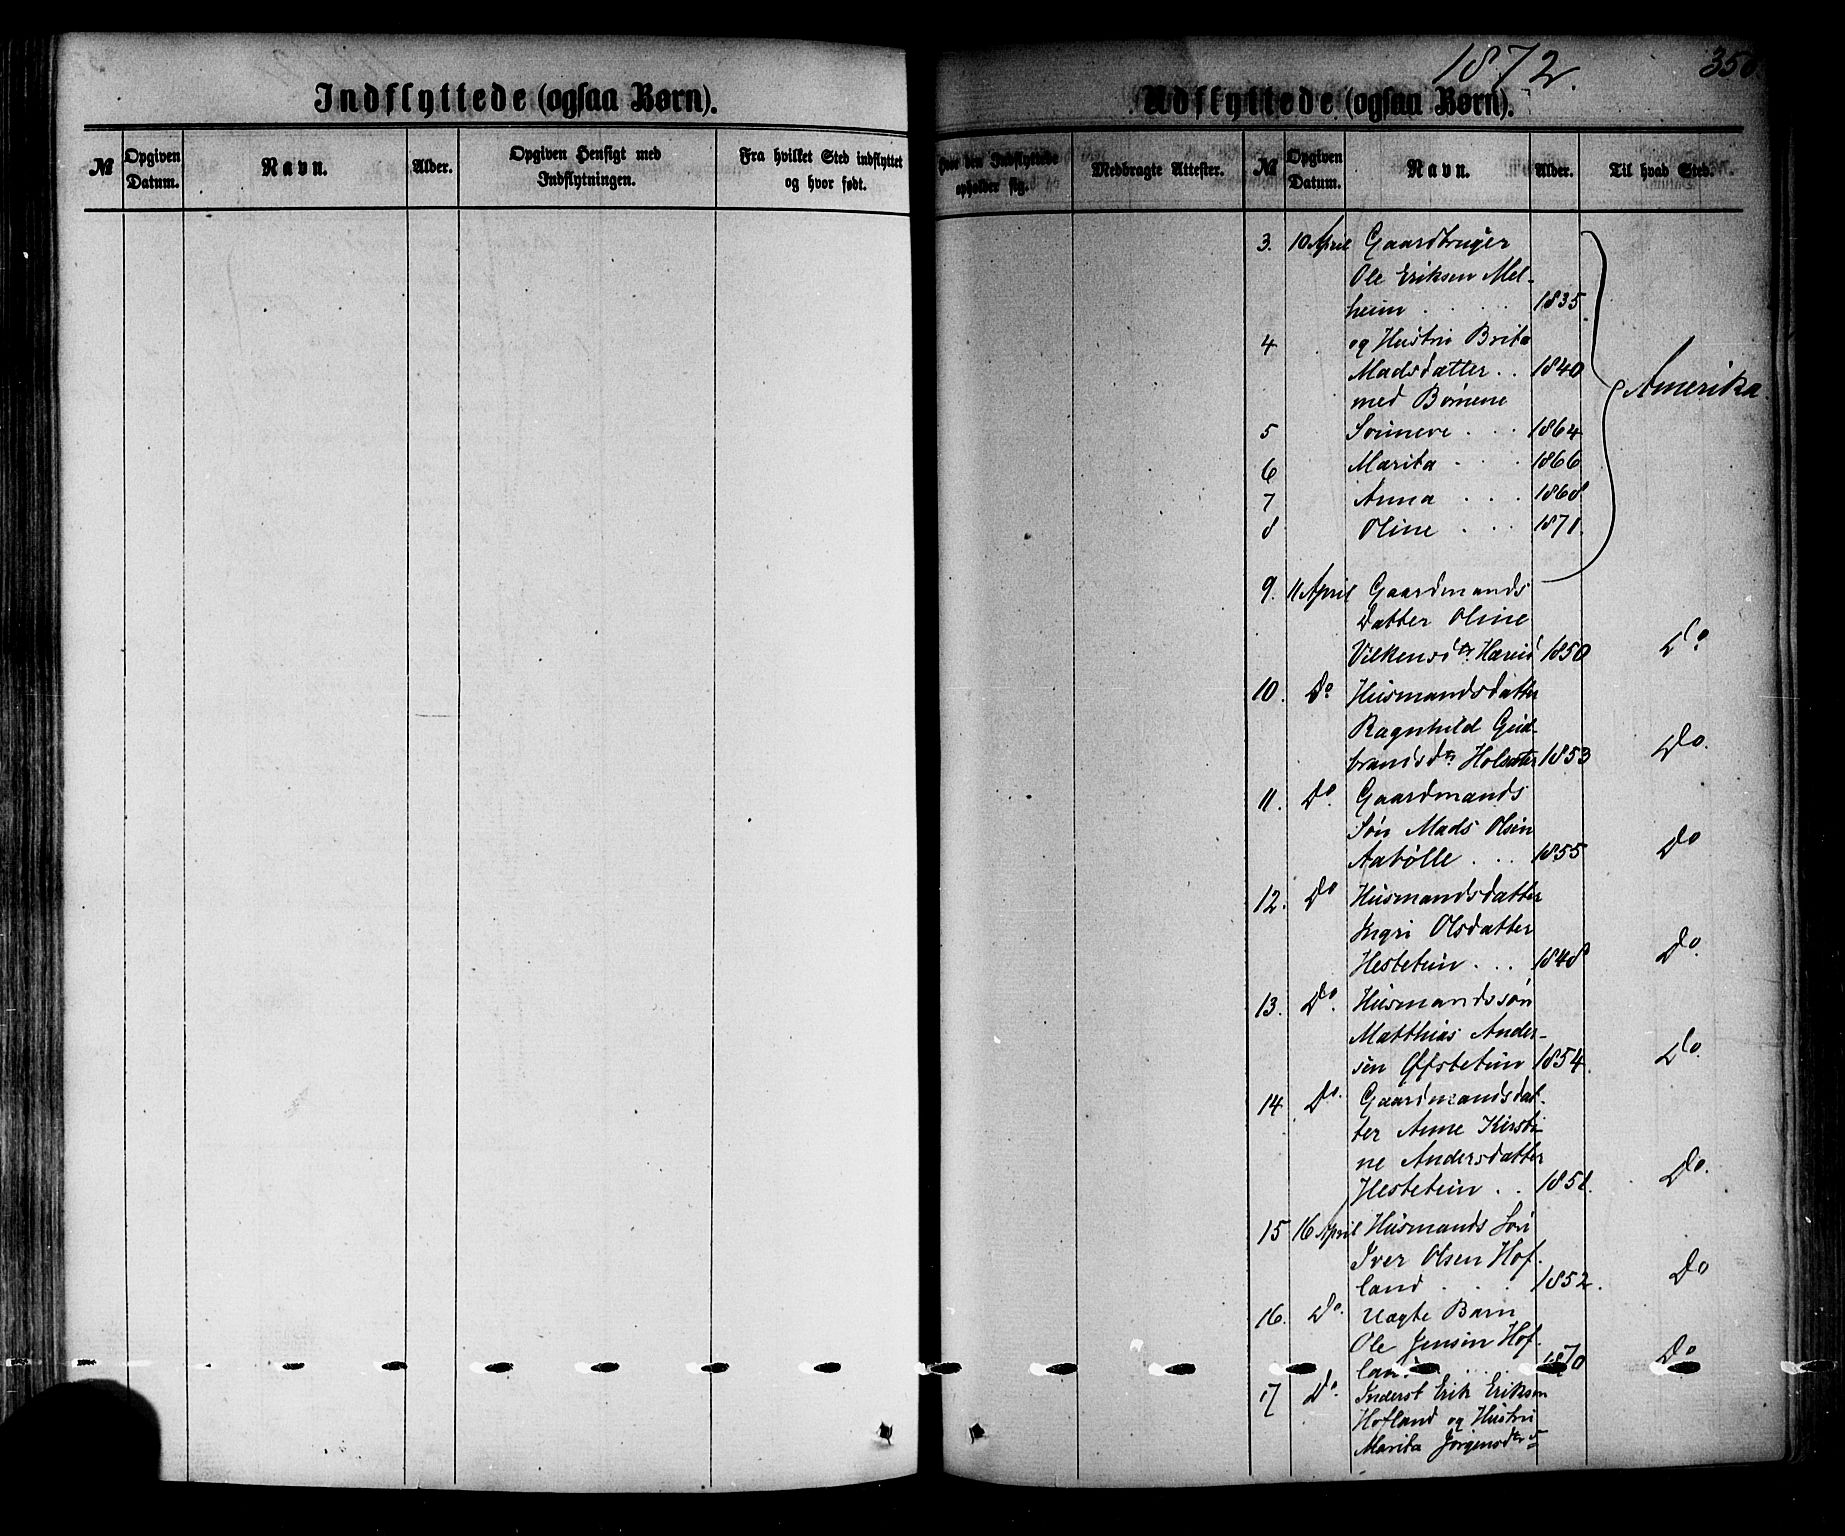 1872.
Indflyttede (ogsaa Børn).
Udflyttede (ogsaa Børn).
№ Opgiven Datum. Navn. Alder. Opgiven Hensigt med Indflytningen. Fra hvilket Sted indflyttet og hvor født.
Hos den Indflyttede opholder sig. Medbragte Attester. № Opgiven Datum. Navn. Alder. Til hvad Sted.
3. 10 April Gaardbruger
Ole Eriksen Mel-
heim 1835
4 og Hustru Brita
Madsdatter . . 1840 Amerika
med Børnene
5 Synneve . . . 1864
6 Marita . . . 1866
7 Anna . . . 1868
8 Oline . . . 1871.
9. 11 April Gaardmands
Datter Oline
Vilkensdtr 1850 Do
10. Do Husmandsdatter
Ragnhild Gud-
brandsdtr 1853 Do.
11. Do. Gaardmands
Søn Mads Olsen
Aabølle . . . 1855 Do
12. Do Husmandsdatter
Ingri Olsdatter
Hestetun . . . 1848 Do.
13. Do. Husmandssøn
Matthias Ander-
sen 1854. Do.
14 Do. Gaardmandsdat-
ter Anne Kirsti-
ne Andersdatter
Hestetun . . 1851. Do.
15 16 April Husmands Søn
Iver Olsen Hof-
land . . . 1852. Do
16. Do. Uægte Barn
Ole Jensen Hof-
land . . . 1870 Do
17 Do. Inderst Erik Eriksen
Hofland og Hustru
Marita Jørgensdtr